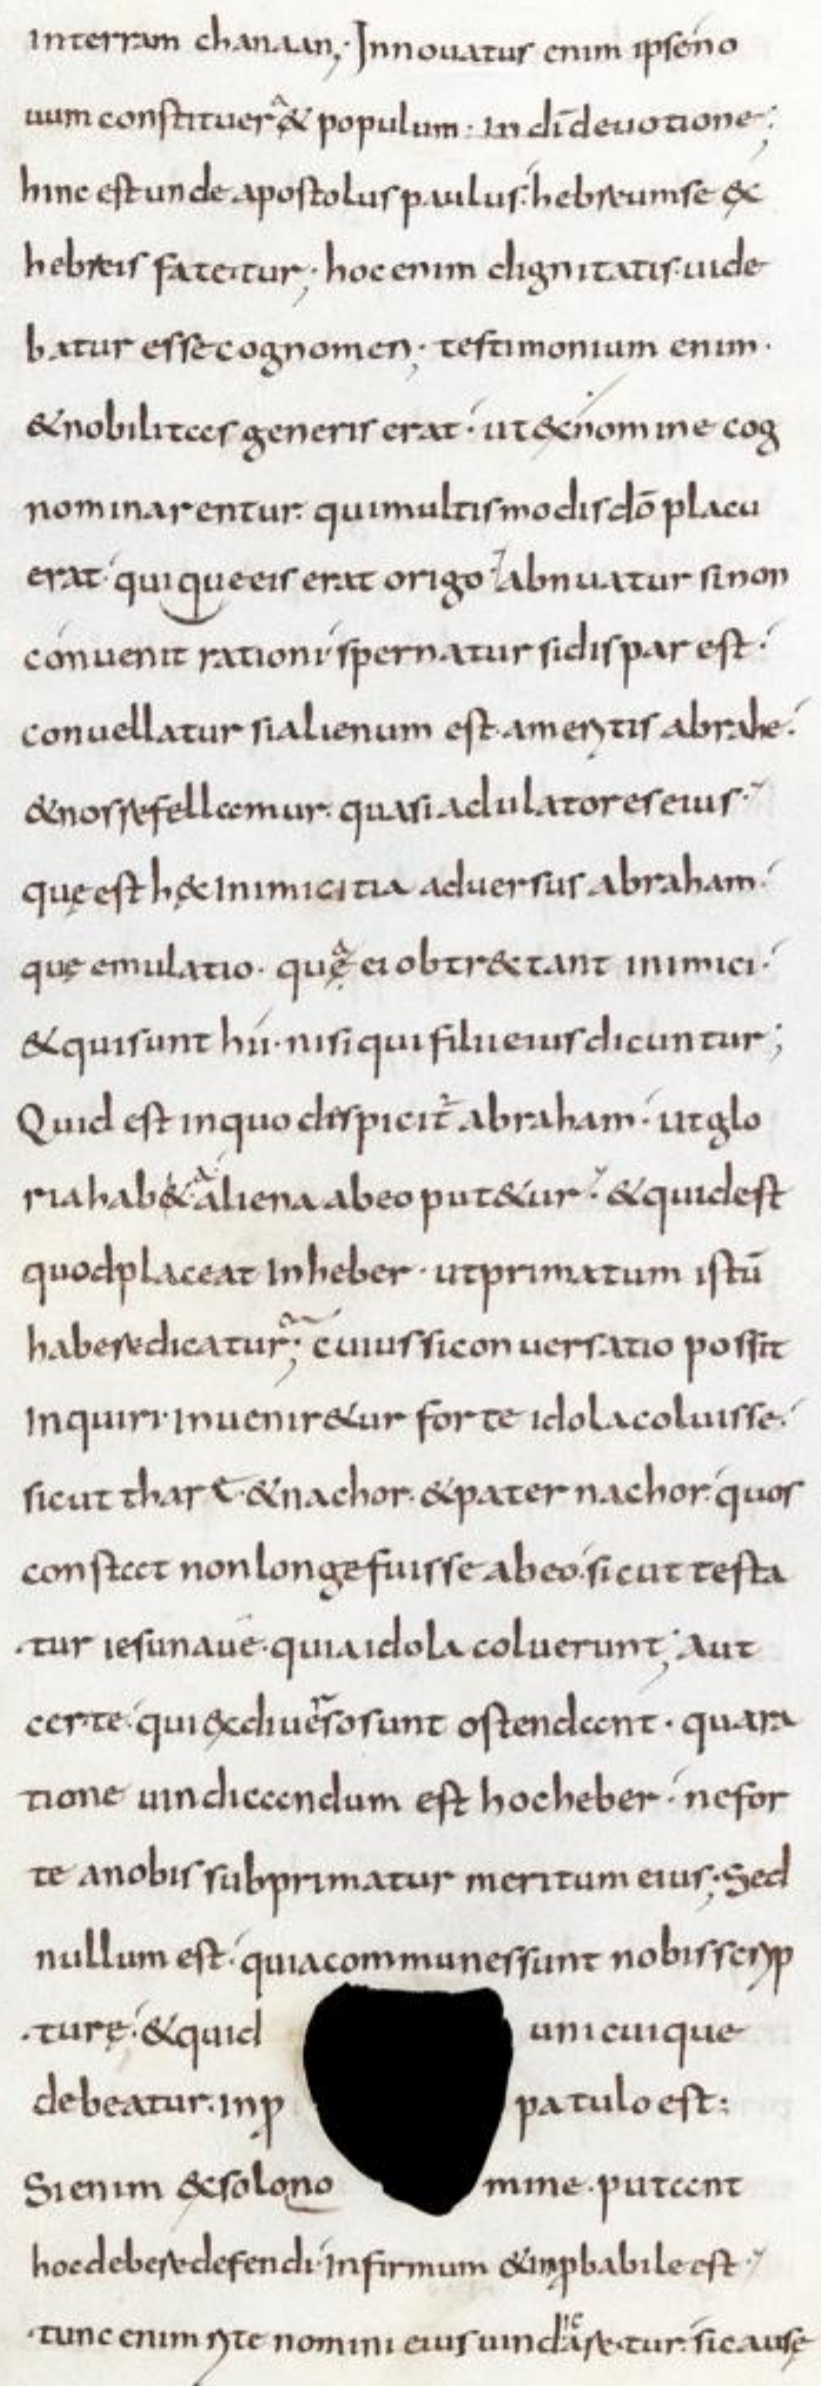 interram chanaan; Innouatus enim ipse no
uum constituer&̂ populum· in dī deuotione;
hinc est unde apostolus paulus· hebreum se ex
hebreis fatetur; hoc enim dignitatis uide
batur esse cognomen; testimonium enim·
& nobilitas generis erat· ut ex nomine cog
nominarentur· qui multis modis dō placu
erat· qui queeis erat origo· abnuatur si non
conuenit rationi· spernatur si dispar est·
conuellatur si alienum est ameritis abrahe·
& nos refellamur· quasi adulatores eius·
quę est hęc inimicitia aduersus abraham·
quę emulatio· quę ei obtrectant inimici·
& qui sunt hii· nisi qui filii eius dicuntur;
Quid est inquo despicit̄ abraham· ut glo
ria hab& aliena abeo put&ur· & quid est
quod placeat in heber· ut primatum istū
habere dicatur; cuius si conuersatio possit
inquiri· inuenir&ur forte idola coluisse·
sicut thare· & nachor· & pater nachor· quos
constat non longe fuisse abeo· sicut testa
tur iesu naue· quia idola coluerunt; Aut
certe· qui ex diuerso sunt ostendant· qua ra
tione uindicandum est hoc heber· ne for
te anobis subprimatur meritum eius; Sed
nullum est· quia communes sunt nobis scrip
turę· & quid unicuique
debeatur· inp̱ patulo est:
Si enim ex solo no mine· putant
hoc debere defendi· infirmum & inp̱babile est·
tunc enim rite nomini eius uindicaretur· si causę